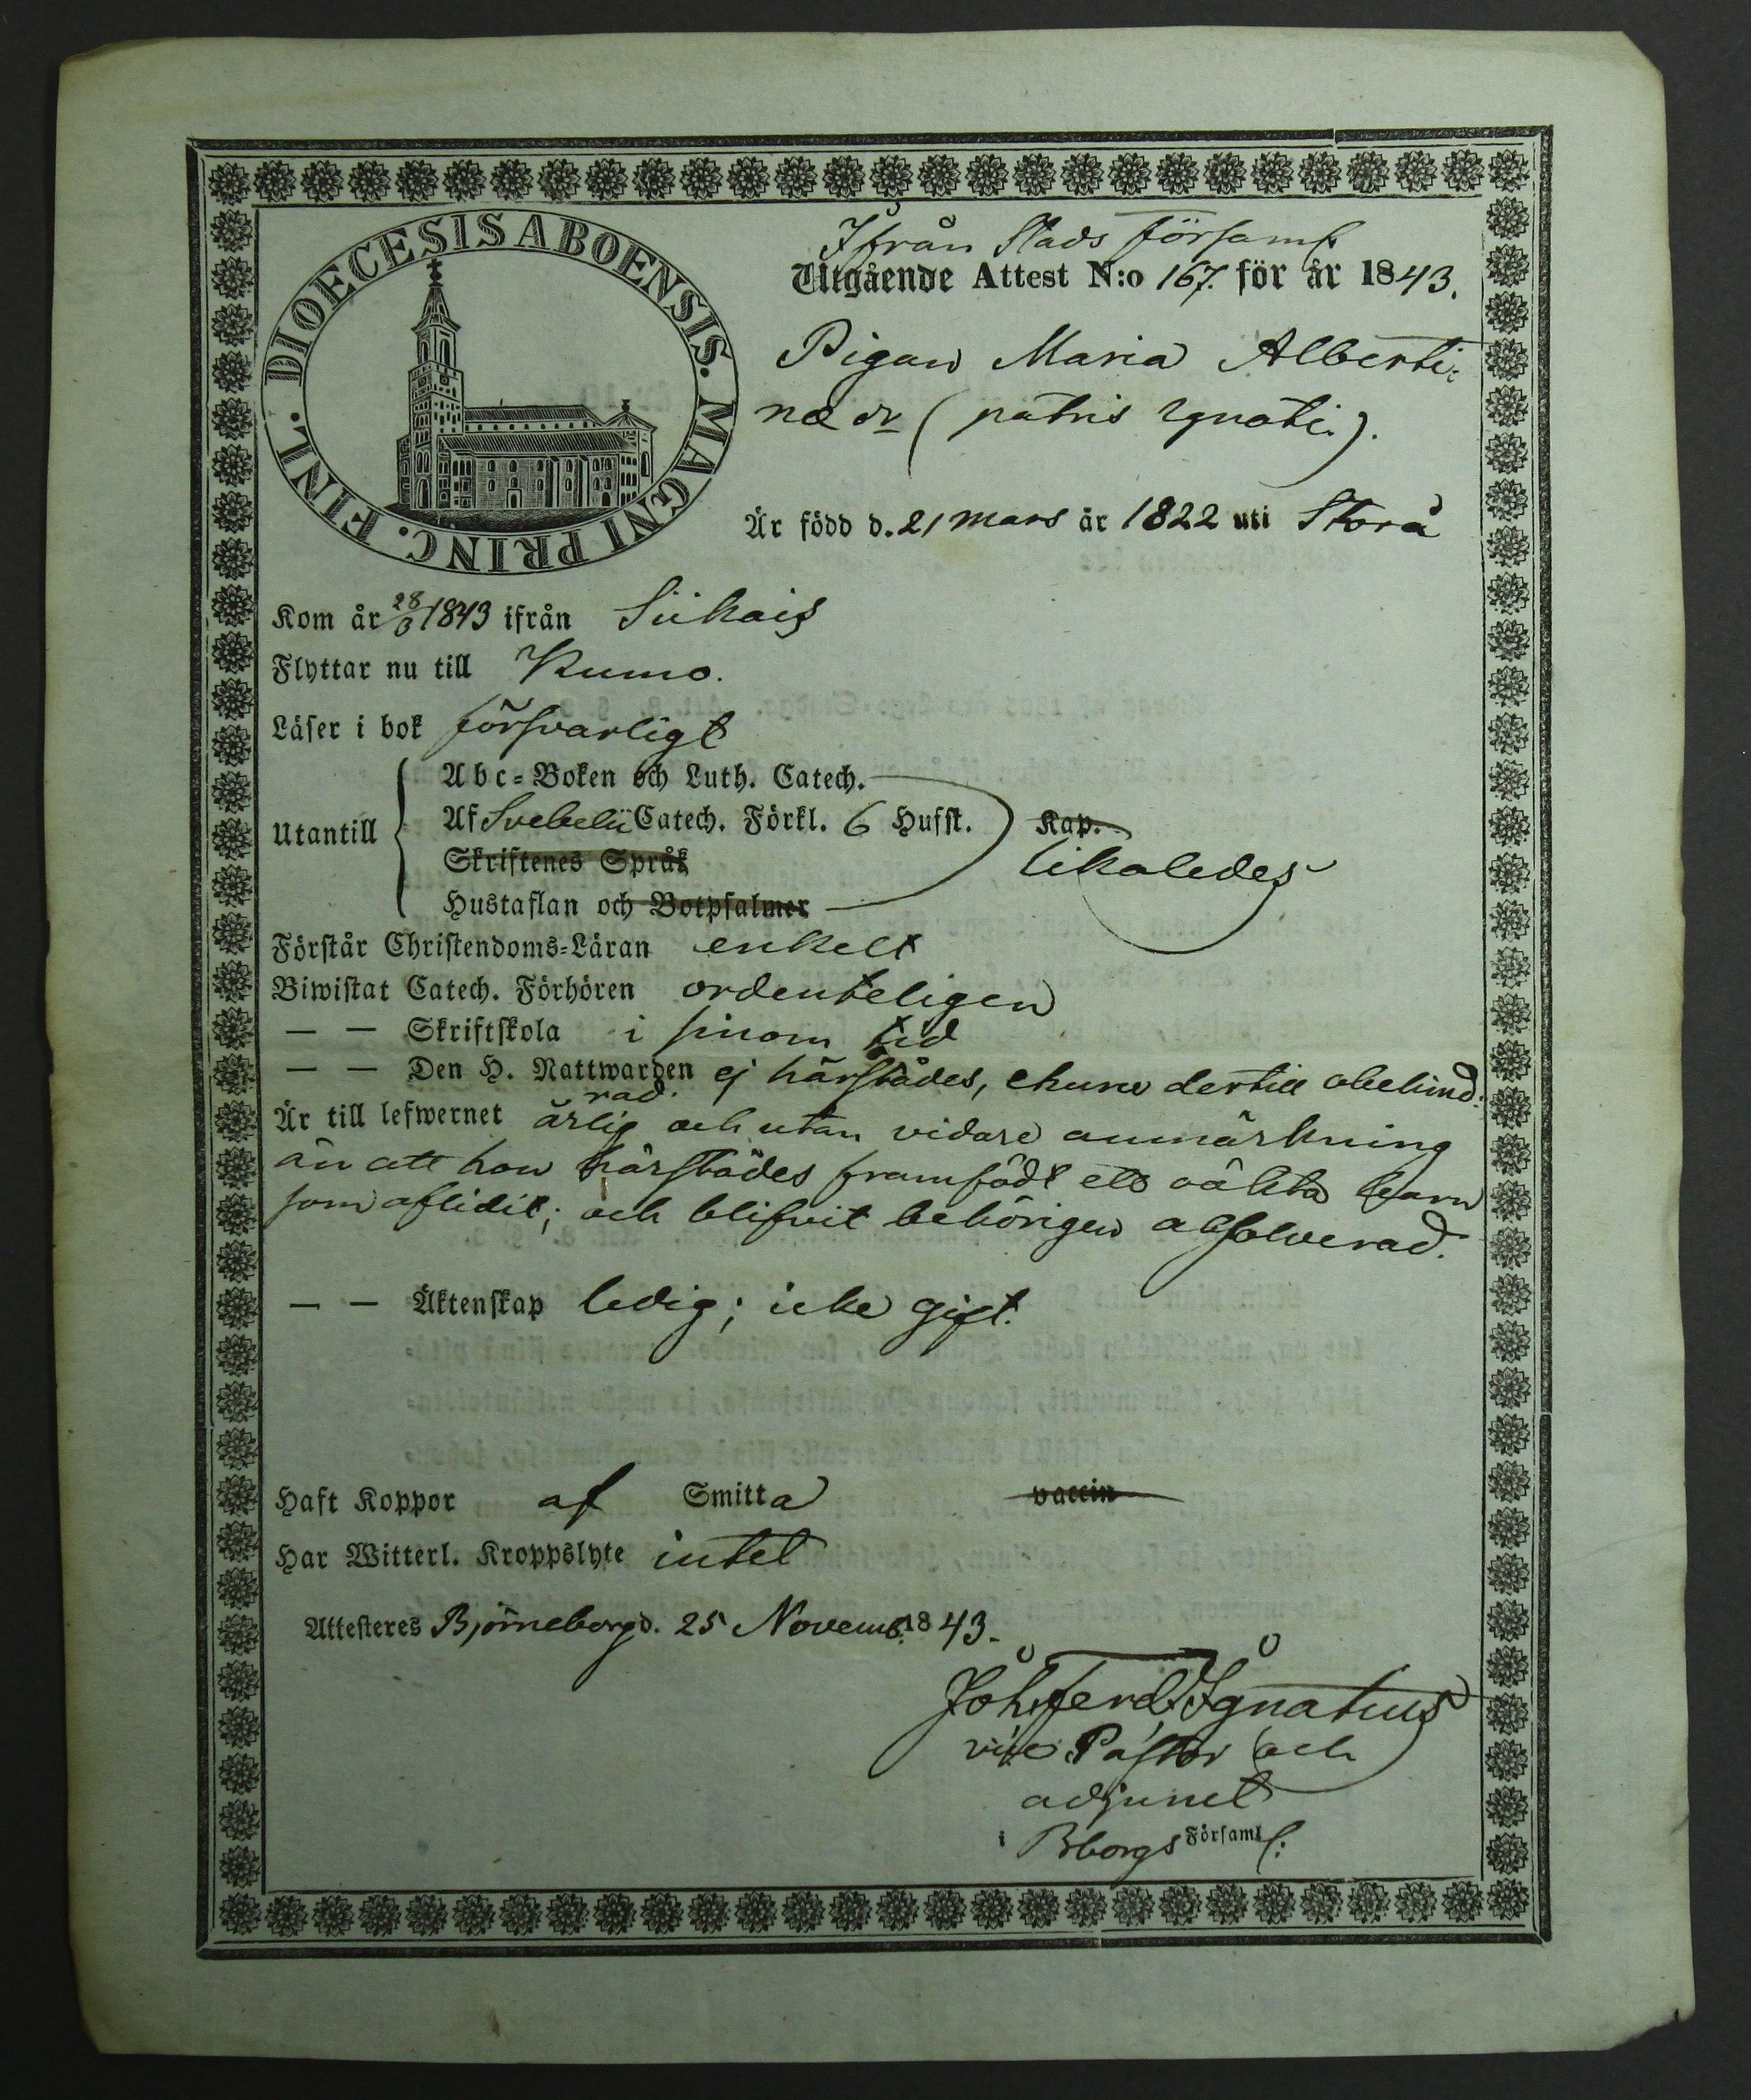 DIOECESIS ABOENSIS. MAGNI PRINC. FINL.
Ifrån Stads församl.
Utgående Attest N:o 167. för år 1843.
Pigan Maria Alberti-
næ dr (patris Ignati.).
Är född d. 21 mars år 1822 uti Storå
Kom år 28/3 1843 ifrån Siikais
Flyttar nu till Kumo.
Läser i bok försvarligt
Abc-Boken och Luth. Catech.
Utantill Af Svebelii Catech. Förkl. 6 Hufst. Kap.
Skriftenes Språk likaledes
Hustaflan och Botpsalmer
Förstår Christendoms-Läran enkelt
Biwistat Catech. Förhören ordenteligen
— — Skriftskola i sinom tid
— — Den H. Nattwarden ej härstädes, ehuru dertill obehind:
rad.
Är till lefwernet ärlig och utan vidare anmärkning
än att hon härstädes framfödt ett oäkta barn
som aflidit; och blifvit behörigen absolverad.
— — Äktenskap ledig; icke gift.
Haft Koppor af Smitta vaccin
Har Witterl. Kroppslyte intet
Attesteres Björneborg d. 25 Novemb. 1843.
Joh. Ferd. Ignatius
vice Pastor och
adjunct
i Bborgs Församl: